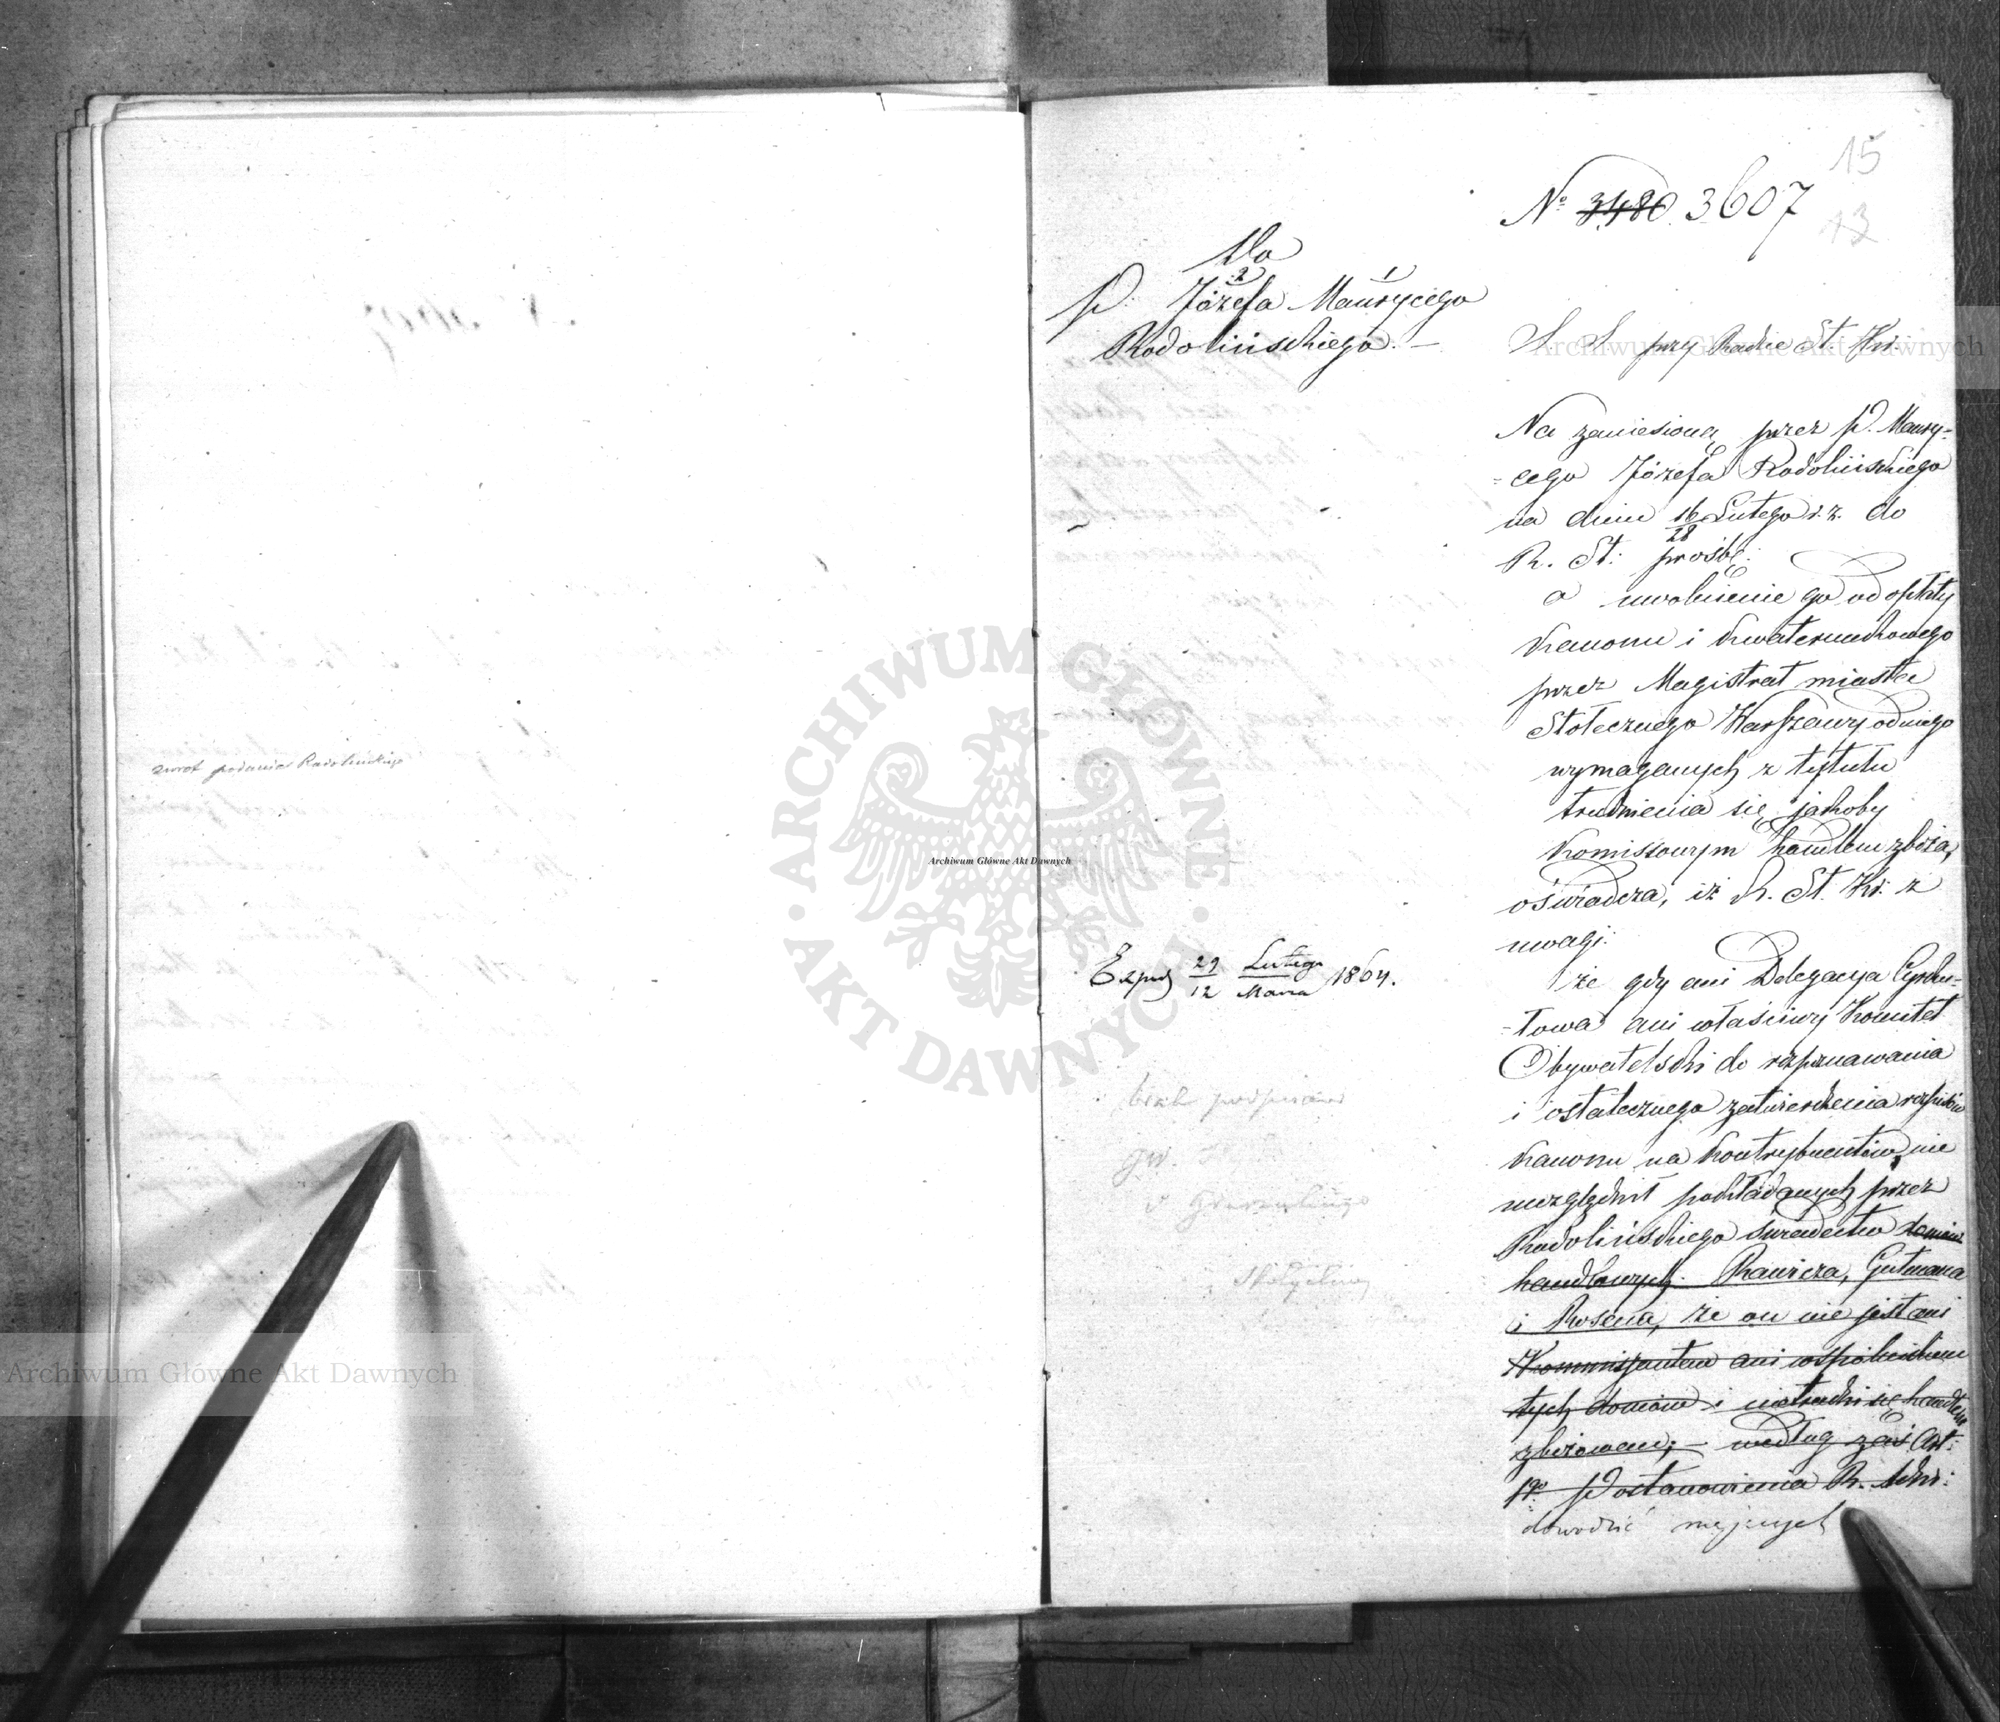 zwrot podania Radolińskiego
15
13
No 3480 3607
Do
2 1
P. Józefa Maurycego
Radolińskiego. —
S. S. przy Radzie St. Kr.
Na zaniesioną przez P. Maury-
=cego Józefa Radolińskiego
na dniu 16/28 Lutego r. z. do
R. St: prośbę:
o uwolnienie go od opłaty
kanonu i kwaterunkowego
przez Magistrat miasta
Stołecznego Warszawy od niego
wymaganych z tytułu
trudnienia się jakoby
komissowym handlem zboża,
oświadcza, iż R. St. Kr. z
uwagi:
że gdy ani Delegacya Cyrku-
=łowa ani właściwy Komitet
Obywatelski do rozpoznawania
i ostatecznego zatwierdzenia rozpisów
kanonu na kontrybuentów, nie
uwzględnił podkładanych przez
Radolińskiego świadectw domów
handlowych: Rawicza, Gutmana
i Rosena, że on nie jest ani
Kommisjantem ani wspólnikiem
tych domów i nie trudni się handlem
zbożowem; — według zaś Art:
19o Postanowienia R. Adm:
dowodzić mających
Exped 29/12 Lutego/Marca 1864.
brak podpisów
JW.
Archiwum Główne Akt Dawnych
ARCHIWUM GŁÓWNE · AKT DAWNYCH ·
Archiwum Główne Akt Dawnych
Archiwum Główne Akt Dawnych